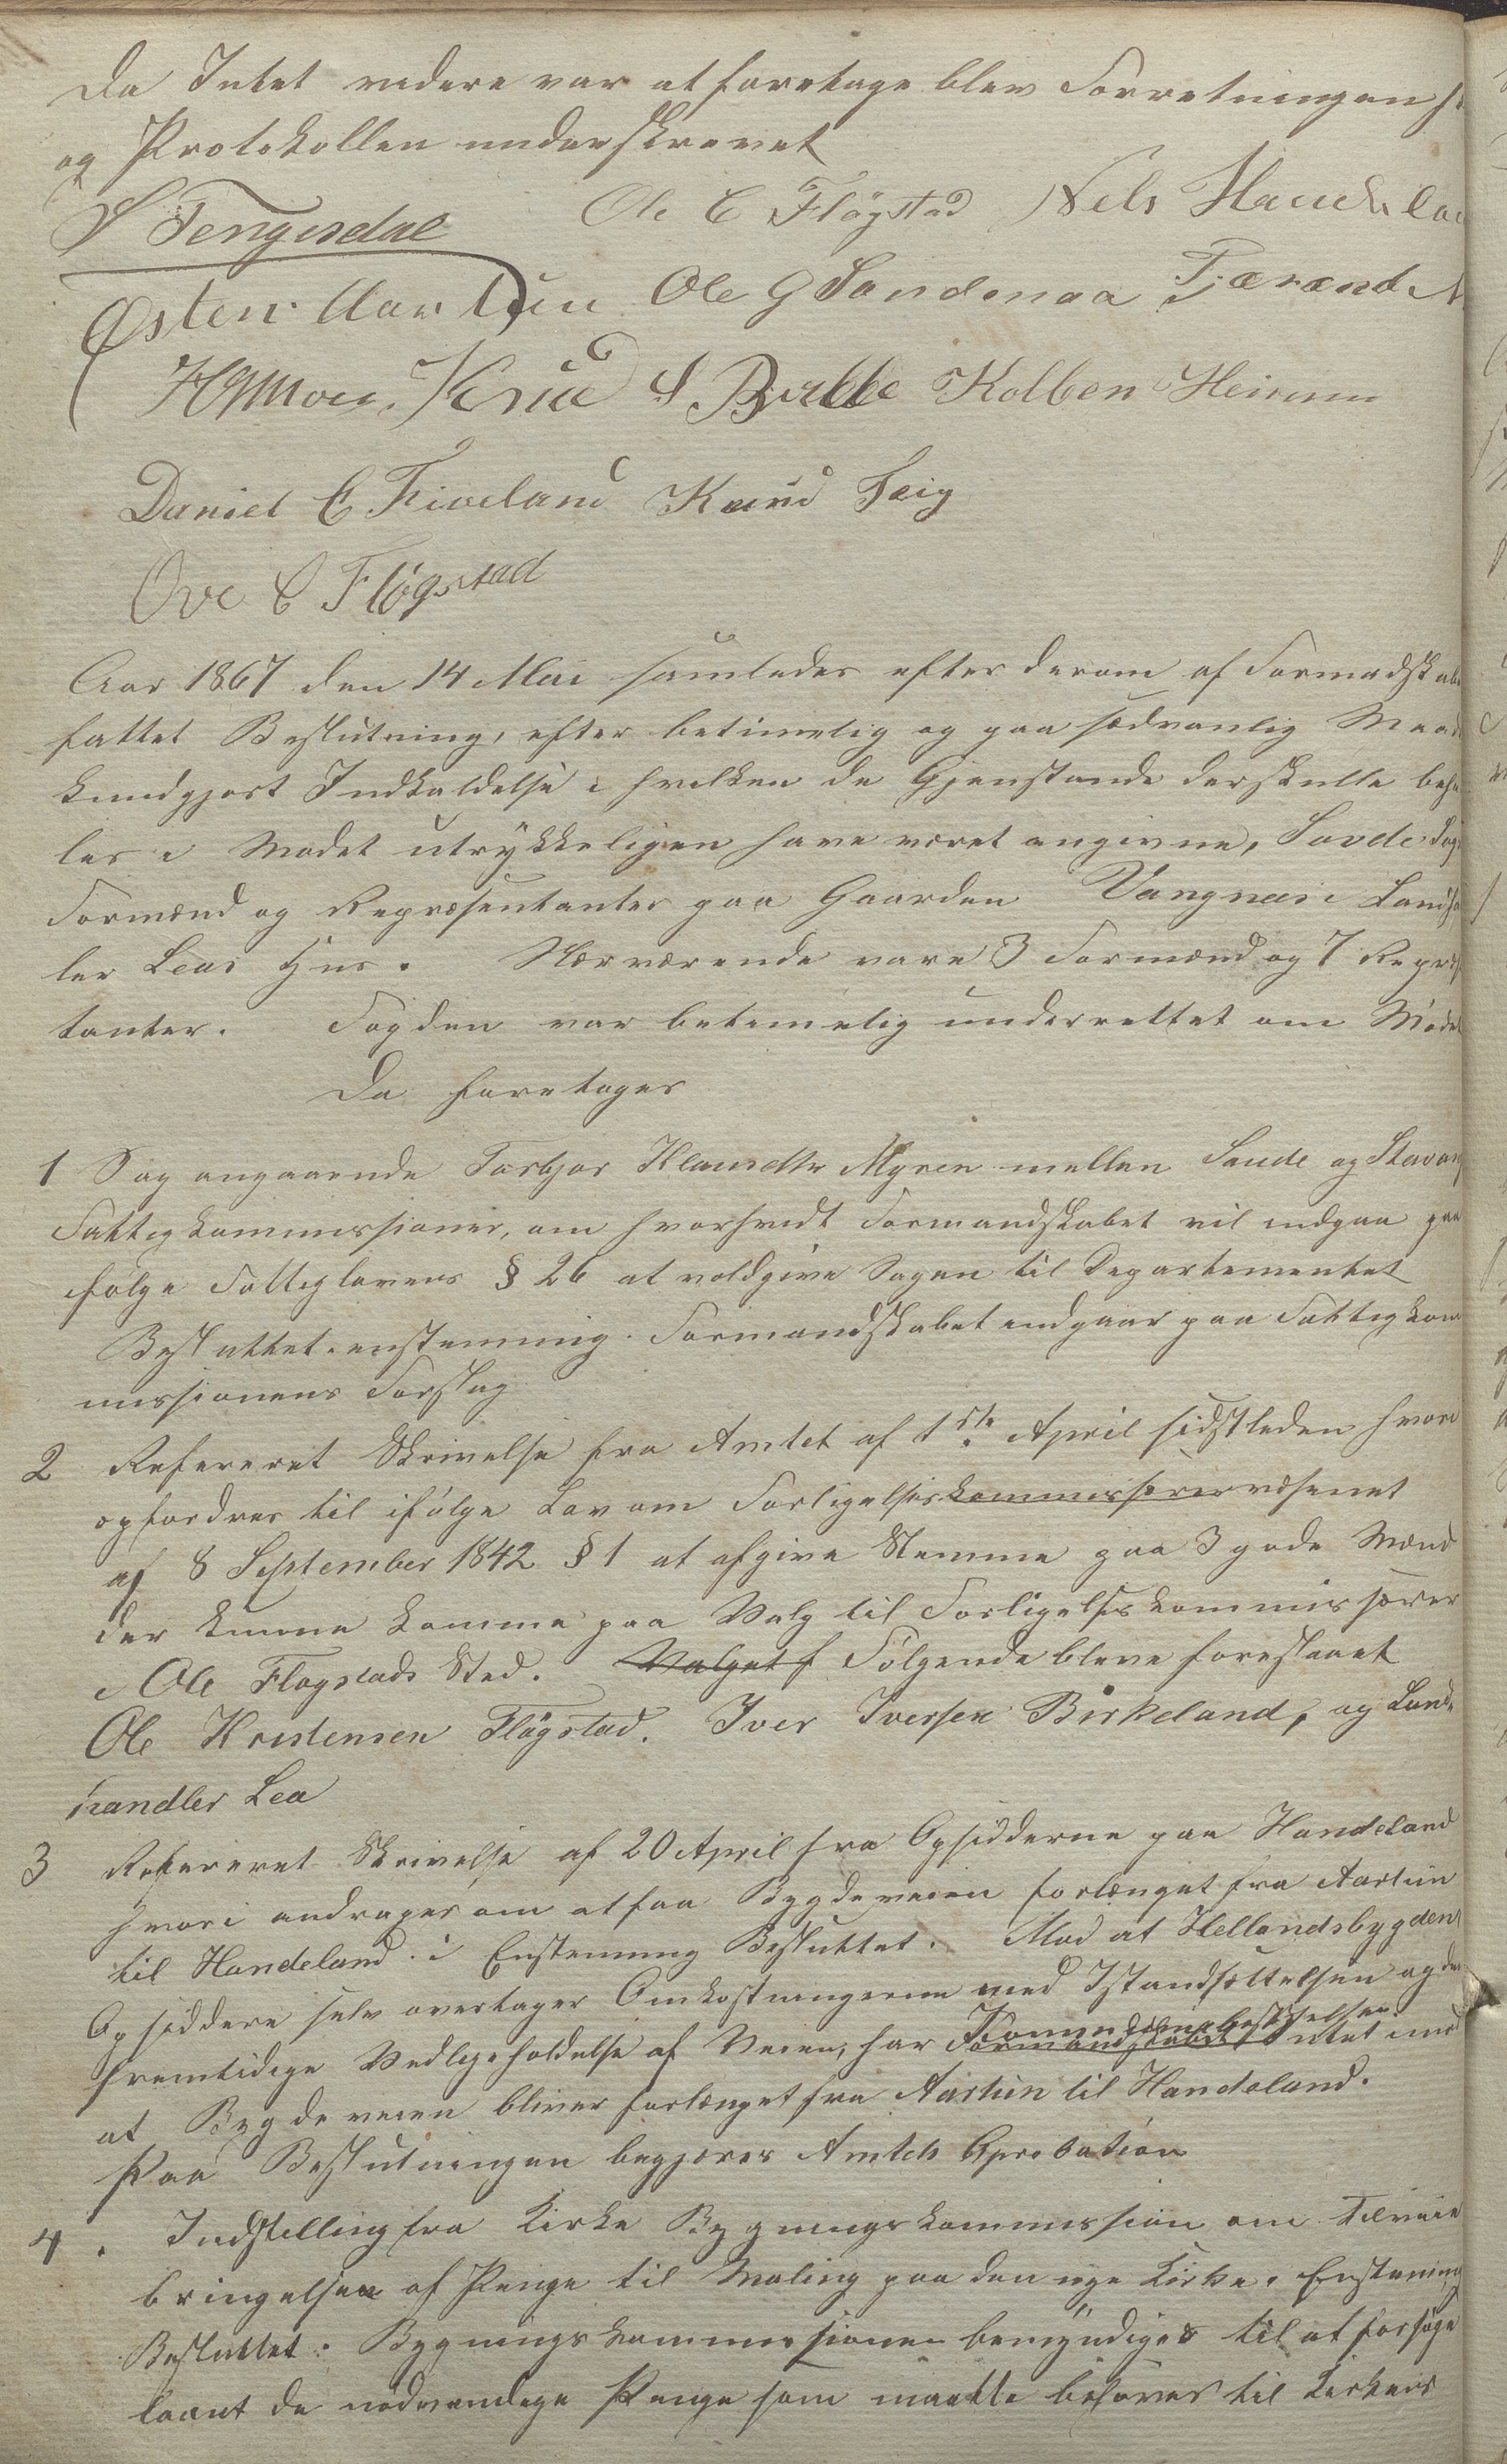 Da Intet videre var at foretage blev Forretningen
og Protokollen underskrevet
S Tengesdal Ole C Flögstad Nels
Østen Aartun Ole G Sandenaa Tjærand
Knud S Birkke Kolben Heimun
Daniel E Fiveland Knud Teig
Ove C Flögstad
Aar 1867 den 14 Mai samledes efter derom af Formandskab
fattet Beslutning, efter betimelig og paa sædvanlig Maa
kundgjort Indkaldelse i hvilken de Gjenstande derskulle beha
les i Mødet utrykkeligen have været angivne, Sovde Sogn
Formænd og Repræsentanter paa Gaarden Vangnæs i Landha
ler Leas Hus. Nærværende vare 3 Formænd og 7 Repræse
tanter. Fogden var betimelig underrettet om Mødet
Da foretoges
1 Sag angaaende Torbjor Klausdtr Myren mellem Saude og Stavang
Fattigkommissioner, om hvorhvidt Formandskabet vil indgaa paa
følge Fattiglovens § 26 at voldgive Sagen til Departementet
Besluttet enstemmig. Formandskabet indgaar paa Fattigkom
missionens Forslag
2 Refereret Skrivelse fra Amtet af 1ste April sidstleden hvori
opfordres til ifølge Lov om Forligelseskommissærervæsenet
af 8 September 1842 § 1 at afgive Stemme paa 3 gode Mænd
der kunne komme paa Valg til Forligelseskommissærer
i Ole Flogstads Sted. Valget f Følgende bleve foreslaaet
Ole Kristensen Flögstad. Iver Iversen Birkeland, og Land-
handler Lea
3 Refereret Skrivelse af 20 April fra Opsidderne paa Handeland
hvori andrages om at faa Bygdeveien forlænget fra Aartun
til Handeland. i Enstemmig Besluttet. Mod at Hellandsbygdens
Opsiddere selv overtager Omkostningerne med Istandsættelsen og den
fremtidige Vedligeholdelse af Veien, har Formandskabet Kommunebestyrelsen Intet imod
at Bygdeveien bliver forlænget fra Aartun til Handeland.
Paa Beslutningen begjæres Amtets Aprobation
4. Indstilling fra Kirke Bygningskommission om tilveie
bringelsen af Penge til Maling paa den nye Kirke. Enstemmig
Besluttet: Bygningskommissionen bemyndiges til at forsøge
laant de nødvendige Penge som maatte behøves til Kirkens